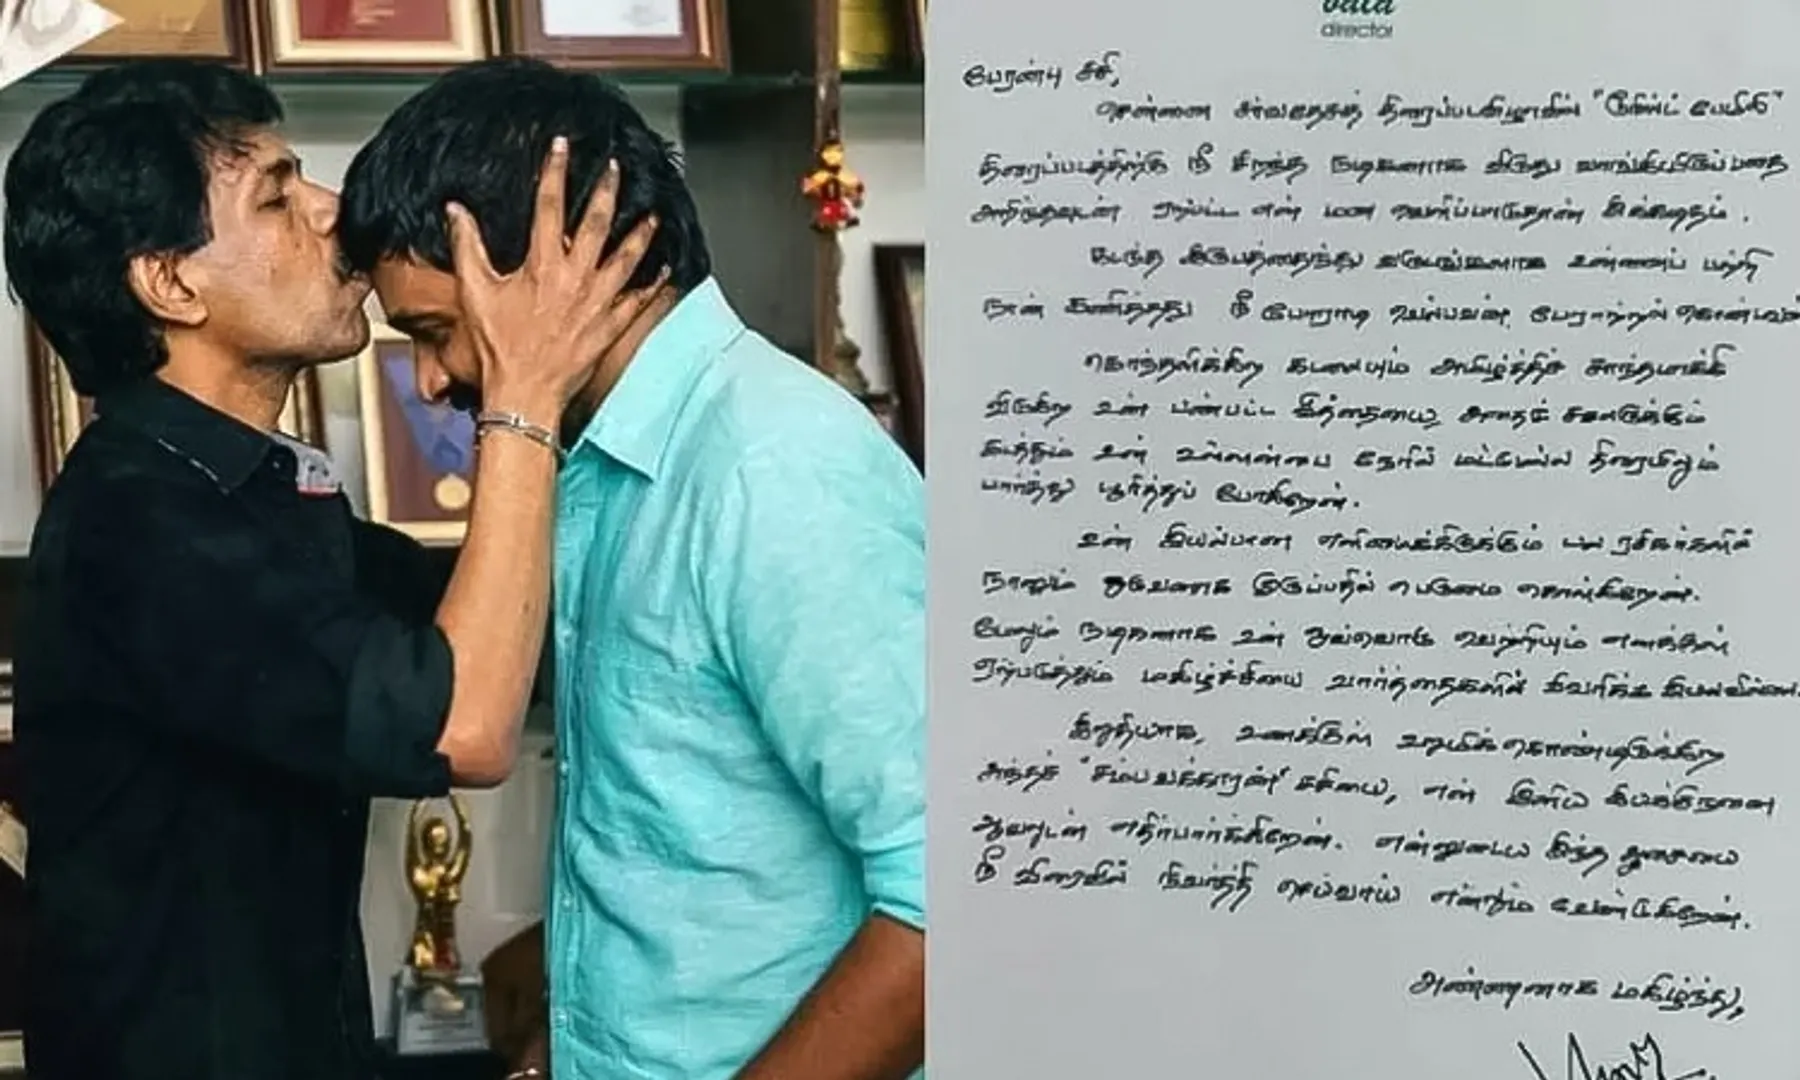 bala
director
பேரன்பு சசி,
சென்னை சர்வதேசத் திரைப்படவிழாவில் "டூரிஸ்ட் பேமிலி"
திரைப்படத்திற்கு நீ சிறந்த நடிகனாக விருது வாங்கியிருப்பதை
அறிந்தவுடன் ஏற்பட்ட என் மன வெளிப்பாடுதான் இக்கடிதம்.
கடந்த இருபத்தைந்து வருடங்களாக உன்னைப் பற்றி
நான் கணித்தது நீ போராடி வெல்பவன், பேராற்றல் கொண்டவன்
கொந்தளிக்கிற கடலையும் அமிழ்த்திச் சாந்தமாக்கி
விடுகிற உன் பண்பட்ட வித்தையை, அனைவருக்கும்
உன் உள்ளன்பை நேரில் மட்டுமல்ல திரையிலும்
பார்த்து பூரித்துப் போகிறேன்.
உன் இயல்பான எளிமைக்கிருக்கும் பல ரசிகர்களில்
நானும் ஒருவனாக இருப்பதில் பெருமை கொள்கிறேன்.
மேலும் நடிகனாக உன் ஒவ்வொரு வெற்றியும் எனக்குள்
ஏற்படுத்தும் மகிழ்ச்சியை வார்த்தைகளில் விவரிக்க இயலவில்லை.
இறுதியாக, உனக்குள் உறங்கிக்கொண்டிருக்கிற
அந்தச் 'சம்பவக்காரன்' சசியை, என் இனிய இயக்குநனை
ஆவலுடன் எதிர்பார்க்கிறேன். என்னுடைய இந்த ஆசையை
நீ விரைவில் நிவர்த்தி செய்வாய் என்றும் வேண்டுகிறேன்.
அண்ணனாக மகிழ்ந்து,